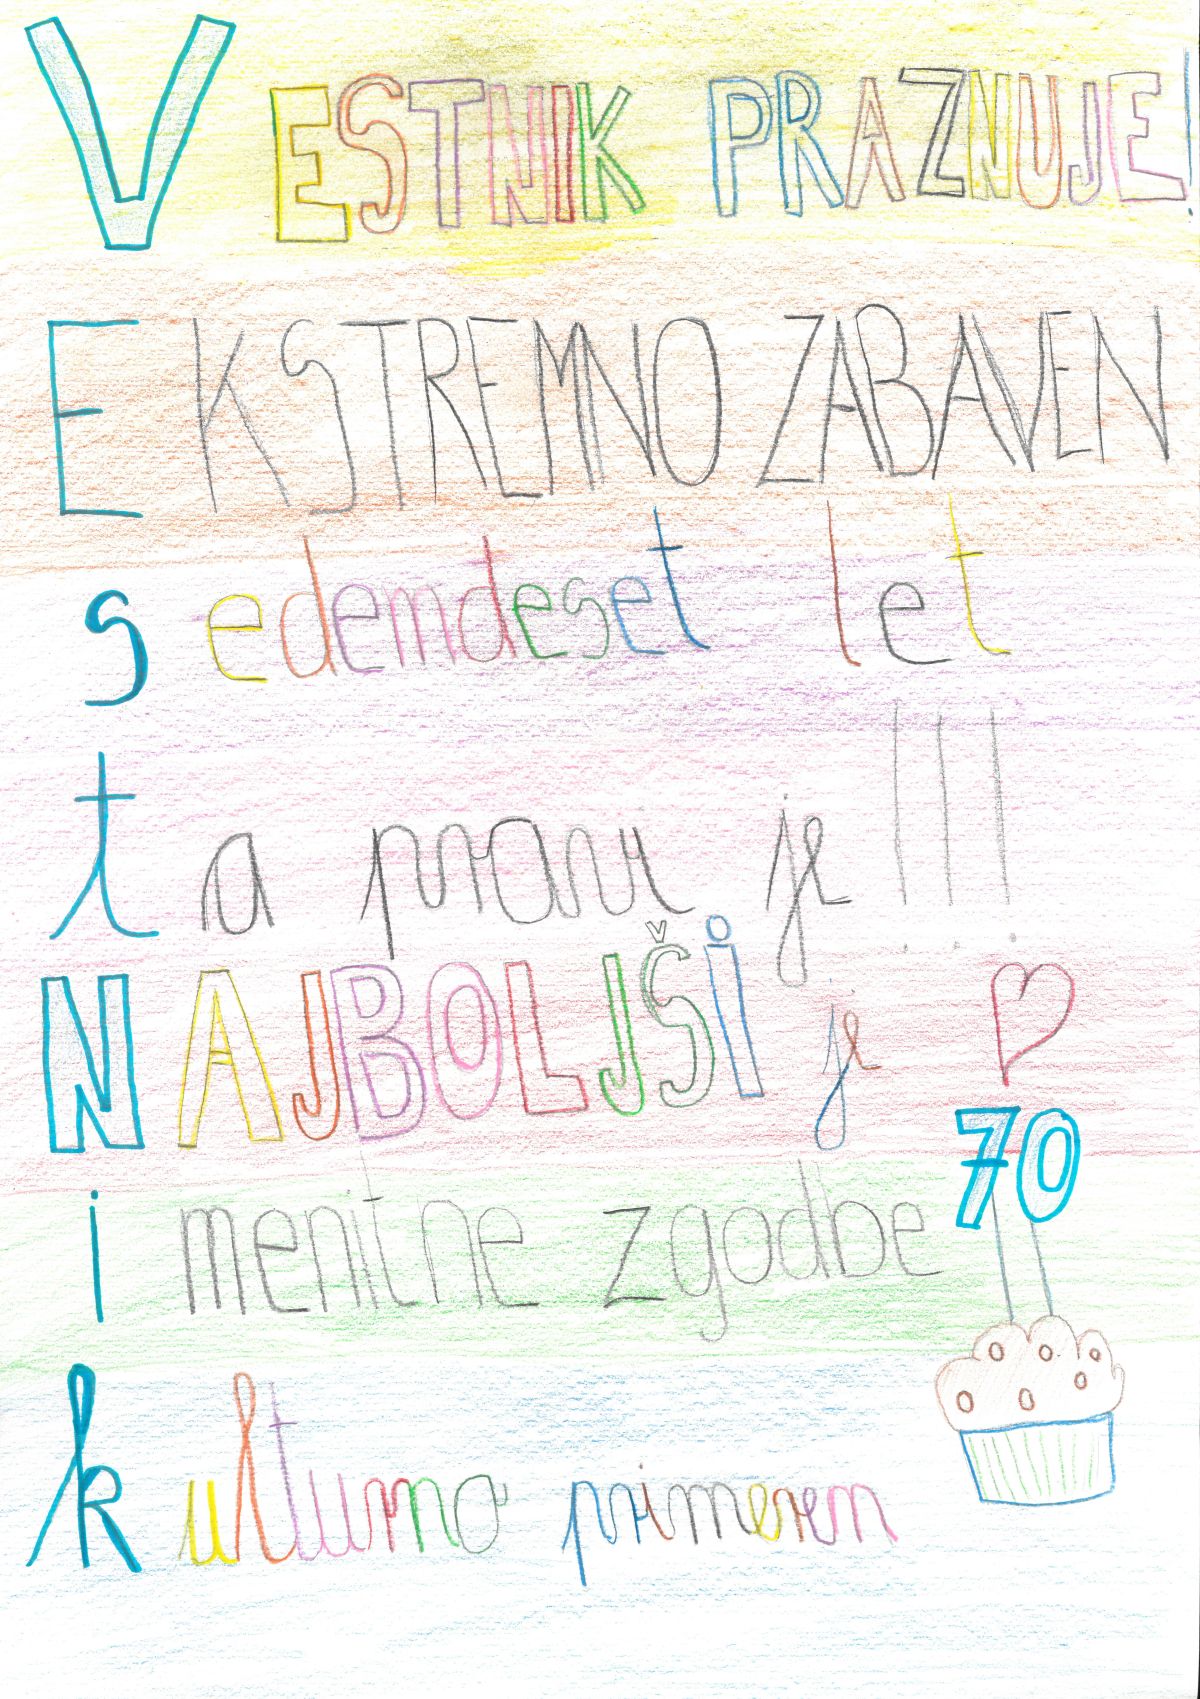 VESTNIK PRAZNUJE!
EKSTREMNO ZABAVEN
sedemdeset let
ta pravi je!!!
NAJBOLJŠi je
70
imenitne zgodbe
kulturno primeren